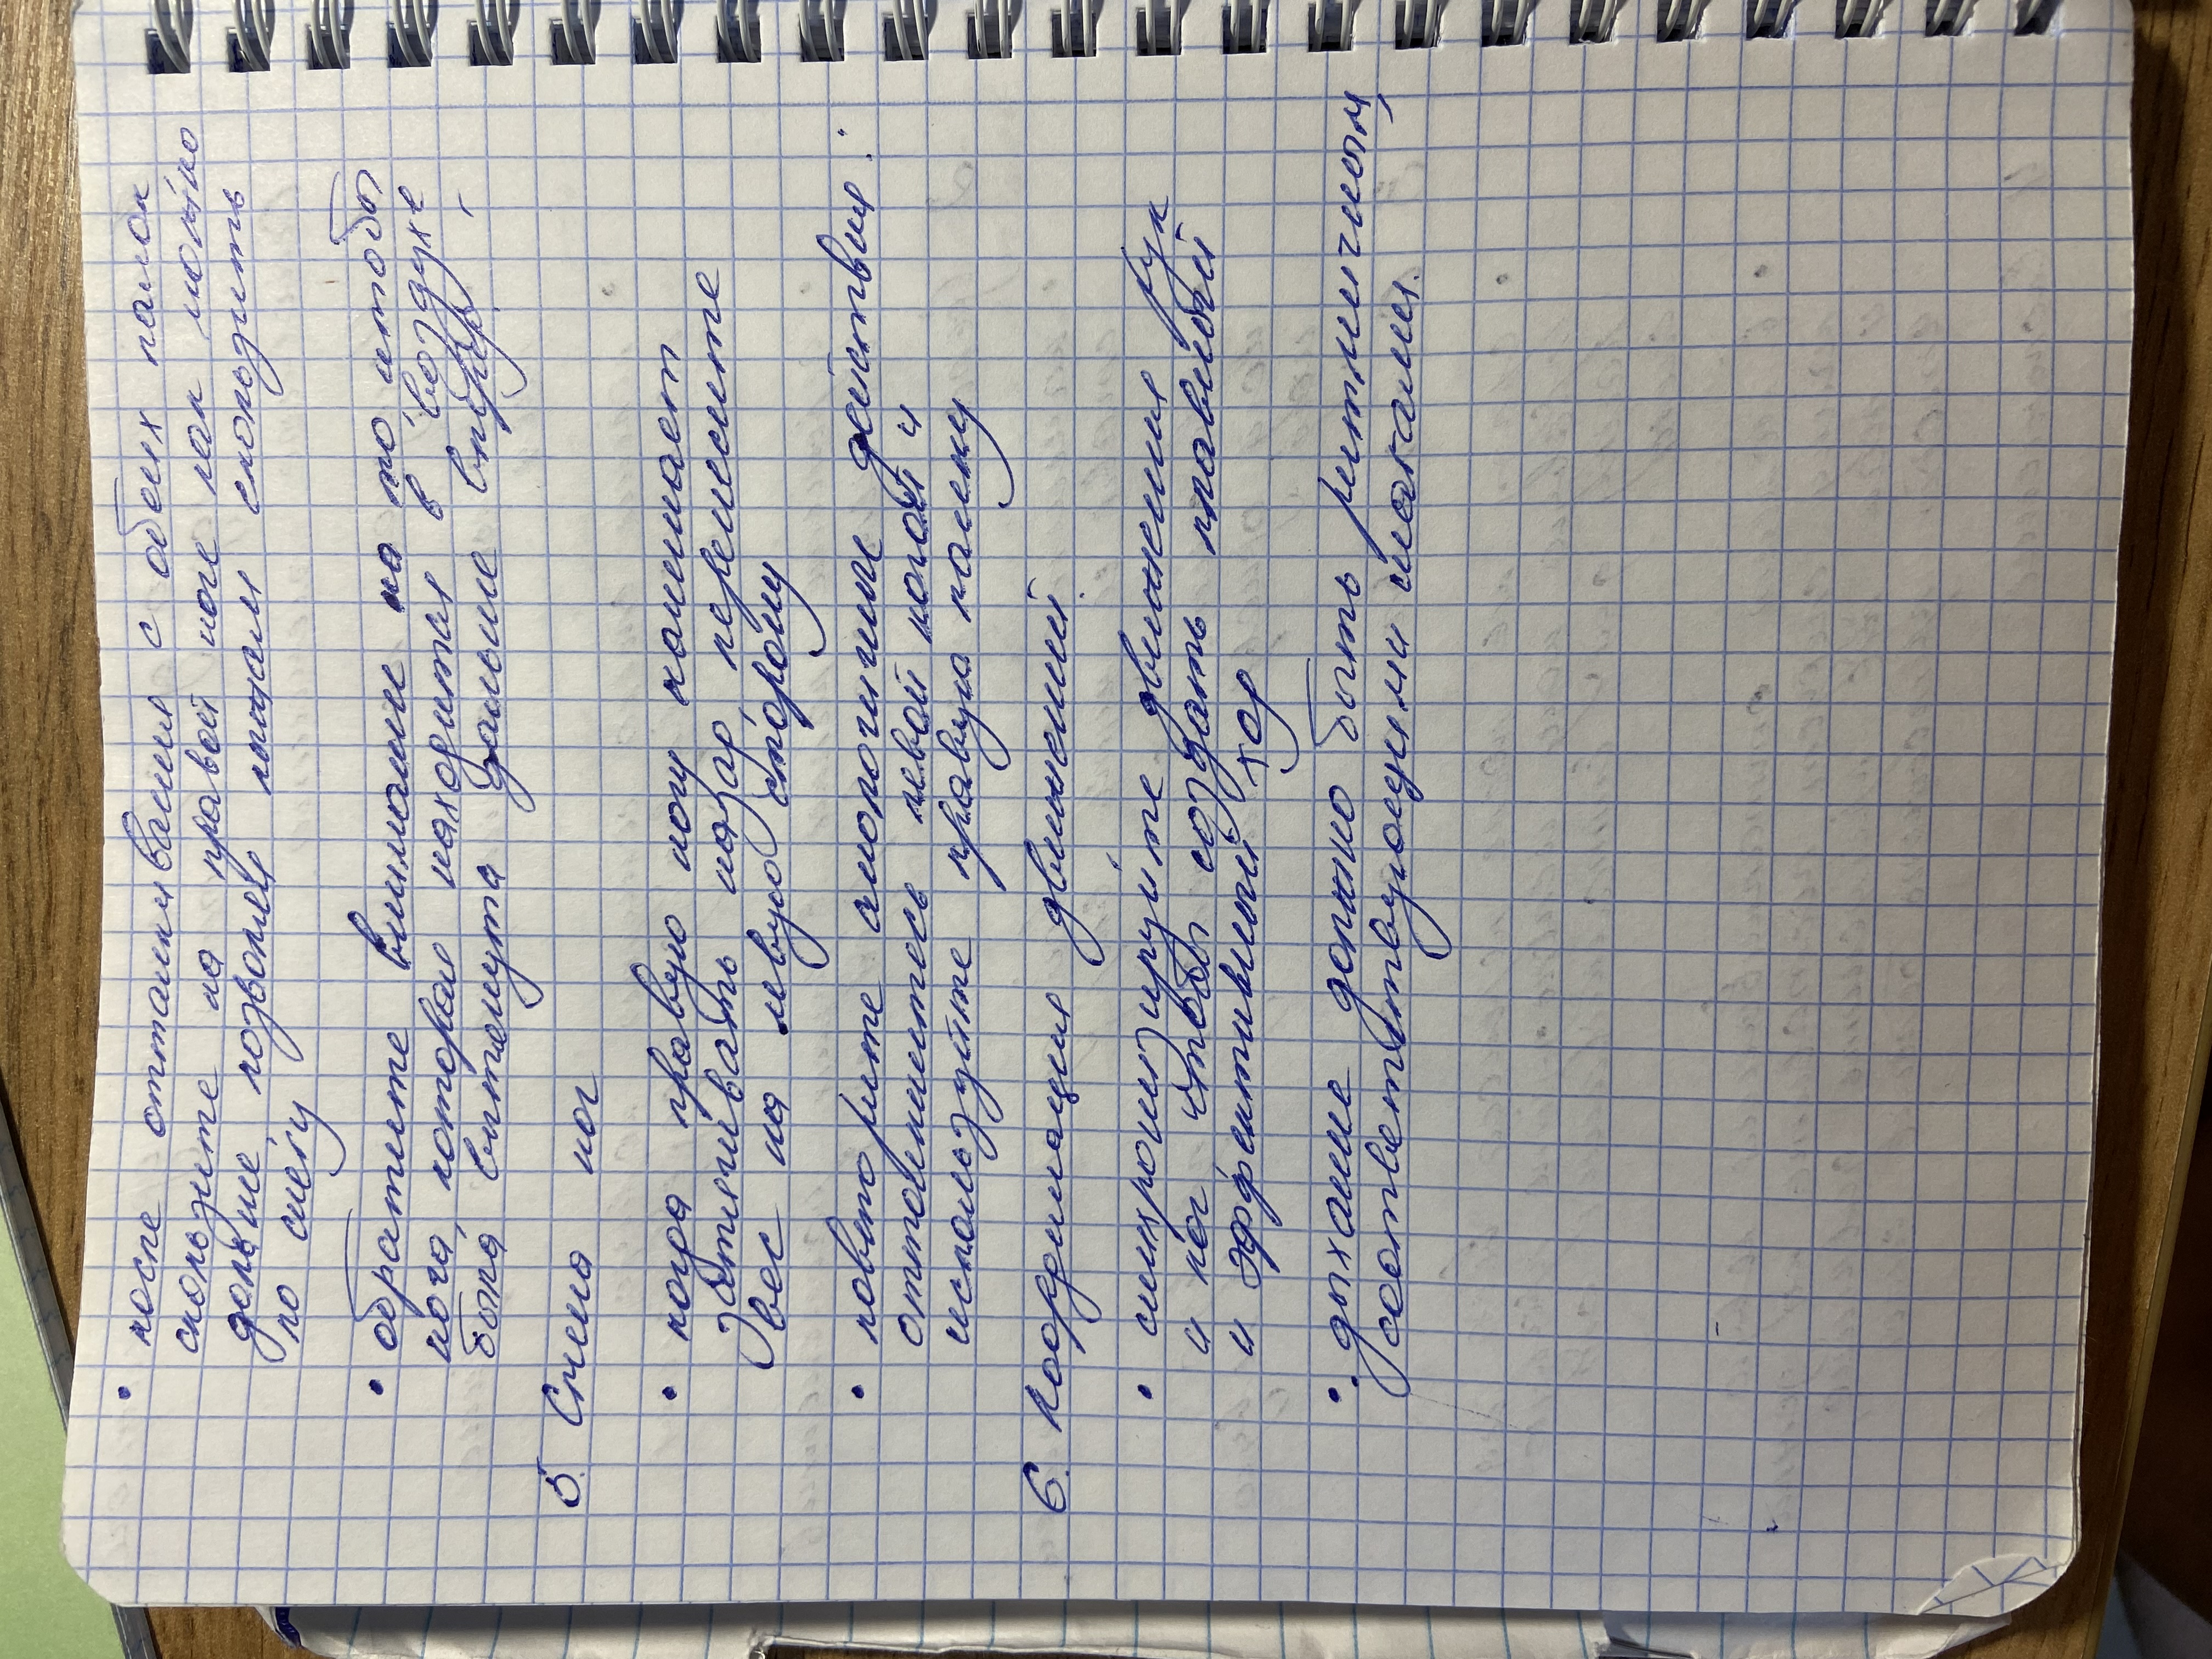 • после отталкивания с обеих палок
скользите на правой ноге как можно
дольше, позволяя лыжам скользить
по снегу
• обратите внимание на то, чтобы
нога, которая находится в воздухе
была вытянута дальше вперёд,
5. Смена ног
• когда правую ногу начинает
затягивать назад, перенесите
вес на левую сторону
• повторите аналогичные действия:
оттолкнитесь левой ногой и
используйте правую палку
6. Координация движений.
• синхронизируйте движения рук
и ног чтобы создать плавный
и эффективный ход
• дыхание должно быть ритмичным,
соответствующими шагами.